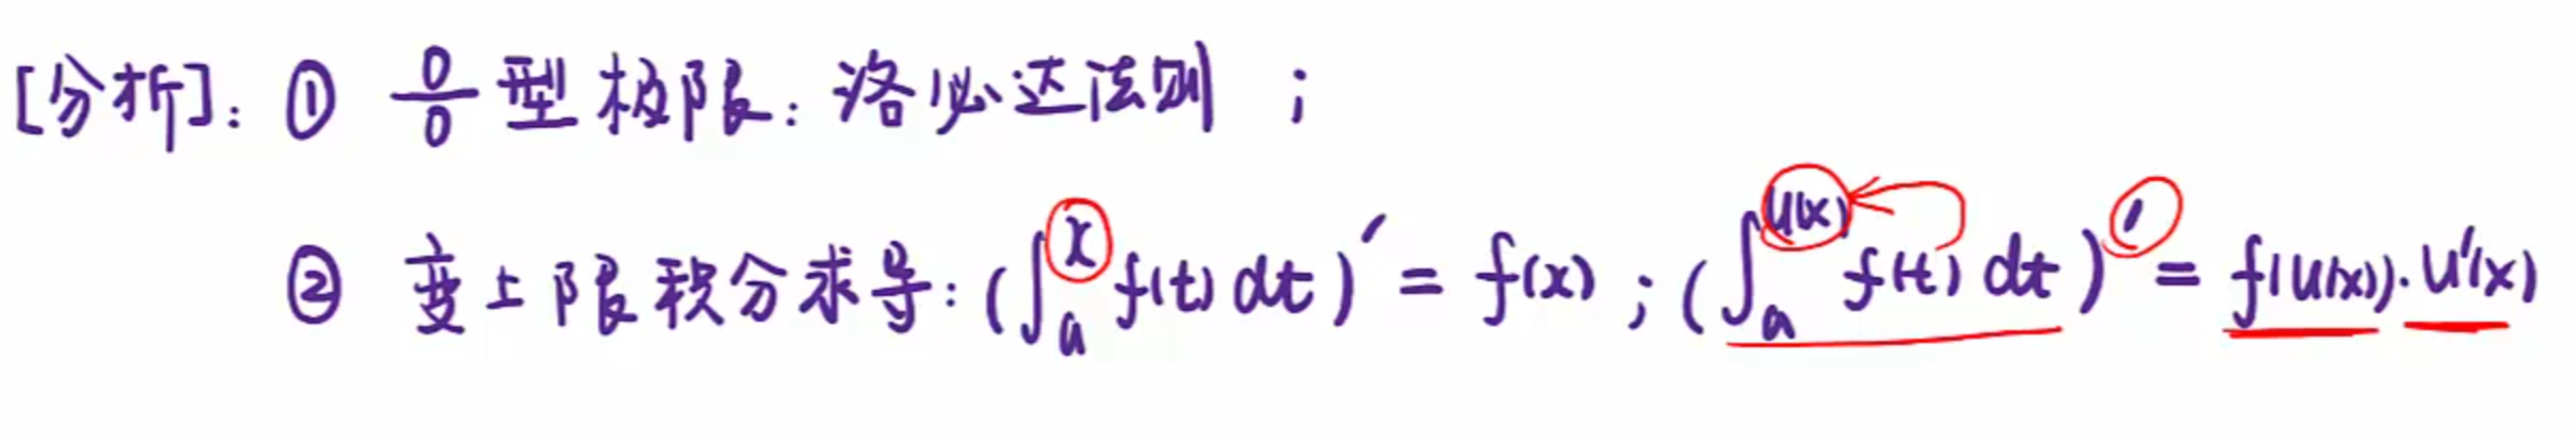 [分析]: ① 0/0 型极限: 洛必达法则 ;
② 变上限积分求导: (∫ₐˣ f(t) dt)′ = f(x) ; (∫ₐ^{u(x)} f(t) dt)′ = f(u(x))·u′(x)